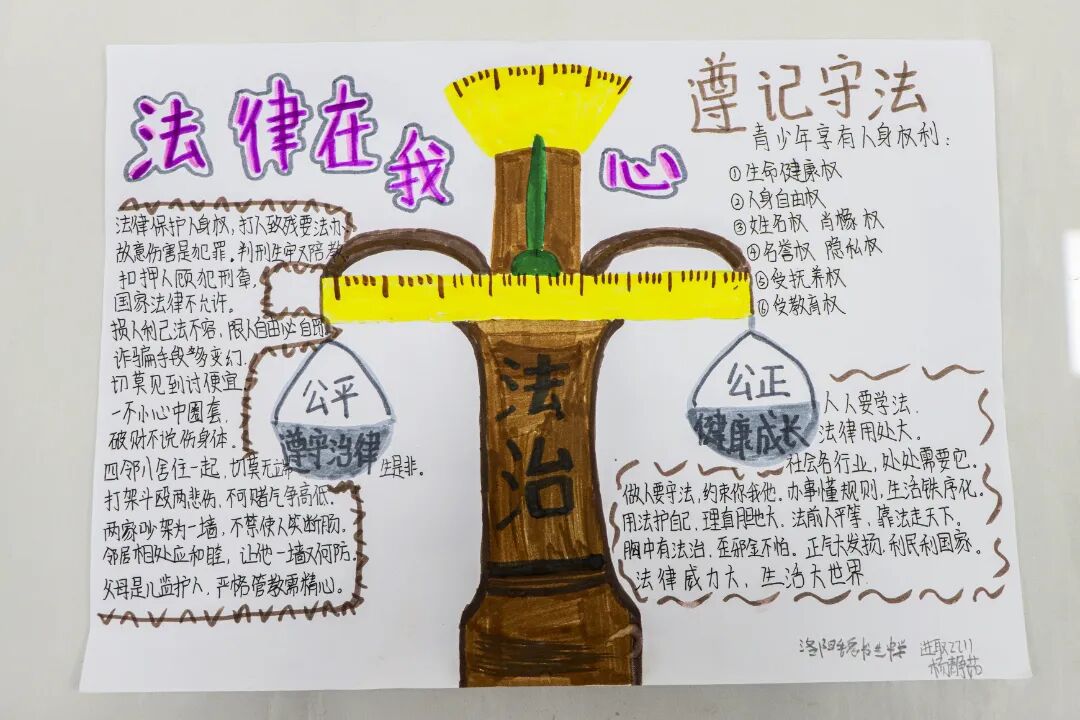 法律在我心
遵记守法
青少年享有人身权利：
①生命健康权
②人身自由权
③姓名权 肖像权
④名誉权 隐私权
⑤受抚养权
⑥受教育权
法律保护人身权，打人致残要法办
故意伤害是犯罪。判刑坐牢又陪
扣押人质犯刑章，
国家法律不允许。
损人利己法不容，限人自由必自
诈骗手段多变幻，
切莫见到讨便宜
一不小心中圈套，
破财不说伤身体。
四邻八舍住一起，切莫无端生是非。
打架斗殴两悲伤，不可赌气争高低
两家吵架为一墙，不禁使人笑断肠。
邻居相处应和睦，让他一墙又何防。
父母是儿监护人，严格管教需精心。
公平
遵守治律
法治
公正
健康成长
人人要学法，
法律用处大。
社会各行业，处处需要它。
做人要守法，约束你我他。办事懂规则，生活秩序化。
用法护自己，理直胆也大，法前人平等，靠法走天下。
胸中有法治，歪邪全不怕。正气大发扬，利民利国家。
法律威力大，生活大世界
洛阳
进取2211
杨静茹